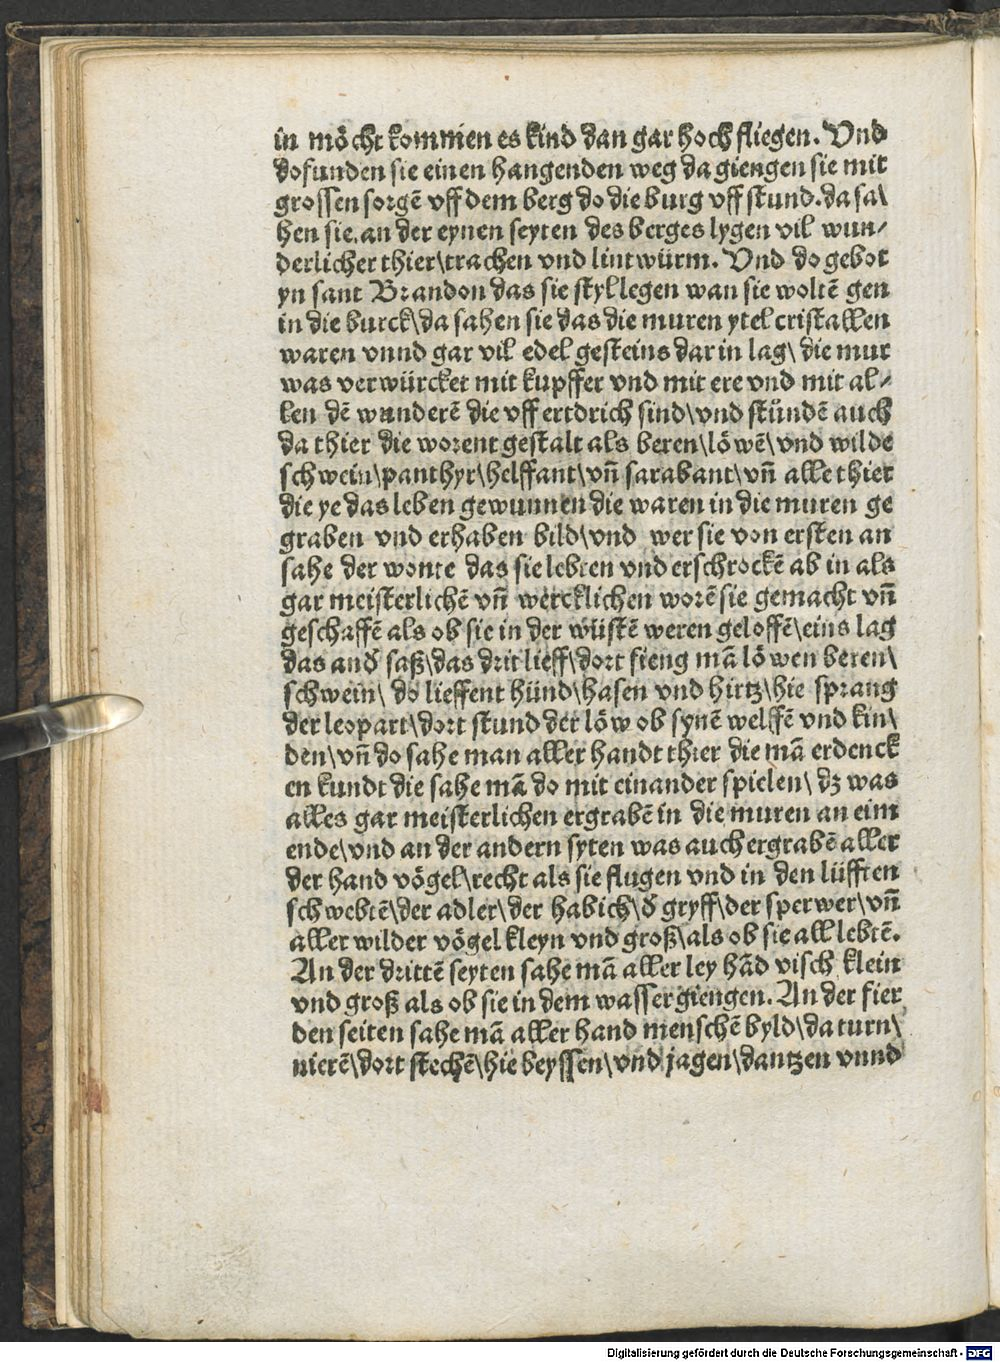 in möcht kommen es kind dan gar hoch fliegen. Vnd
dofunden sie einen hangenden weg da giengen sie mit
grossen sorgē vff dem berg do die burg vff stund. da sa\
hen sie. an der eynen seyten des berges lygen vil wun⸗
derlicher thier\trachen vnd lintwürm. Vnd do gebot
yn sant Brandon das sie styl legen wan sie woltē gen
in die burck\da sahen sie das die muren ytel cristallen
waren vnnd gar vil edel gesteins dar in lag\ die mur
was verwürcket mit kupffer vnd mit ere vnd mit al⸗
len dē wunderē die vff ertdrich sind\vnd stündē auch
da thier die worent gestalt als beren\löwē\vnd wilde
schwein\panthyr\helffant\vn̄ sarabant\vn̄ alle thier
die ye das leben gewunnen die waren in die muren ge
graben vnd erhaben bild\vnd wer sie von ersten an
sahe der wonte das sie lebten vnd erschrockē ab in als
gar meisterlichē vn̄ wercklichen worē sie gemacht vn̄
geschaffē als ob sie in der wüstē weren geloffē\eins lag
das and̄ saß\das drit lieff\dort fieng mā löwen beren\
schwein\ do lieffent hünd\hasen vnd hirtz\hie sprang
der leopart\dort stund der löw ob synē welffē vnd kin\
den\vn̄ do sahe man aller handt thier die mā erdenck
en kundt die sahe mā do mit einander spielen\ dz was
alles gar meisterlichen ergrabē in die muren an eim
ende\vnd an der andern syten was auch ergrabē aller
der hand vögel\recht als sie flugen vnd in den lüfften
schwebtē\der adler\der habich\d̄ gryff\der sperwer\vn̄
aller wilder vögel kleyn vnd groß\als ob sie all lebtē.
An der drittē seyten sahe mā aller ley hād visch klein
vnd groß als ob sie in dem wasser giengen. An der fier
den seiten sahe mā aller hand menschē byld\da turn\
nierē\dort stechē\hie beyssen\vnd jagen\dantzen vnnd
Digitalisierung gefördert durch die Deutsche Forschungsgemeinschaft - DFG